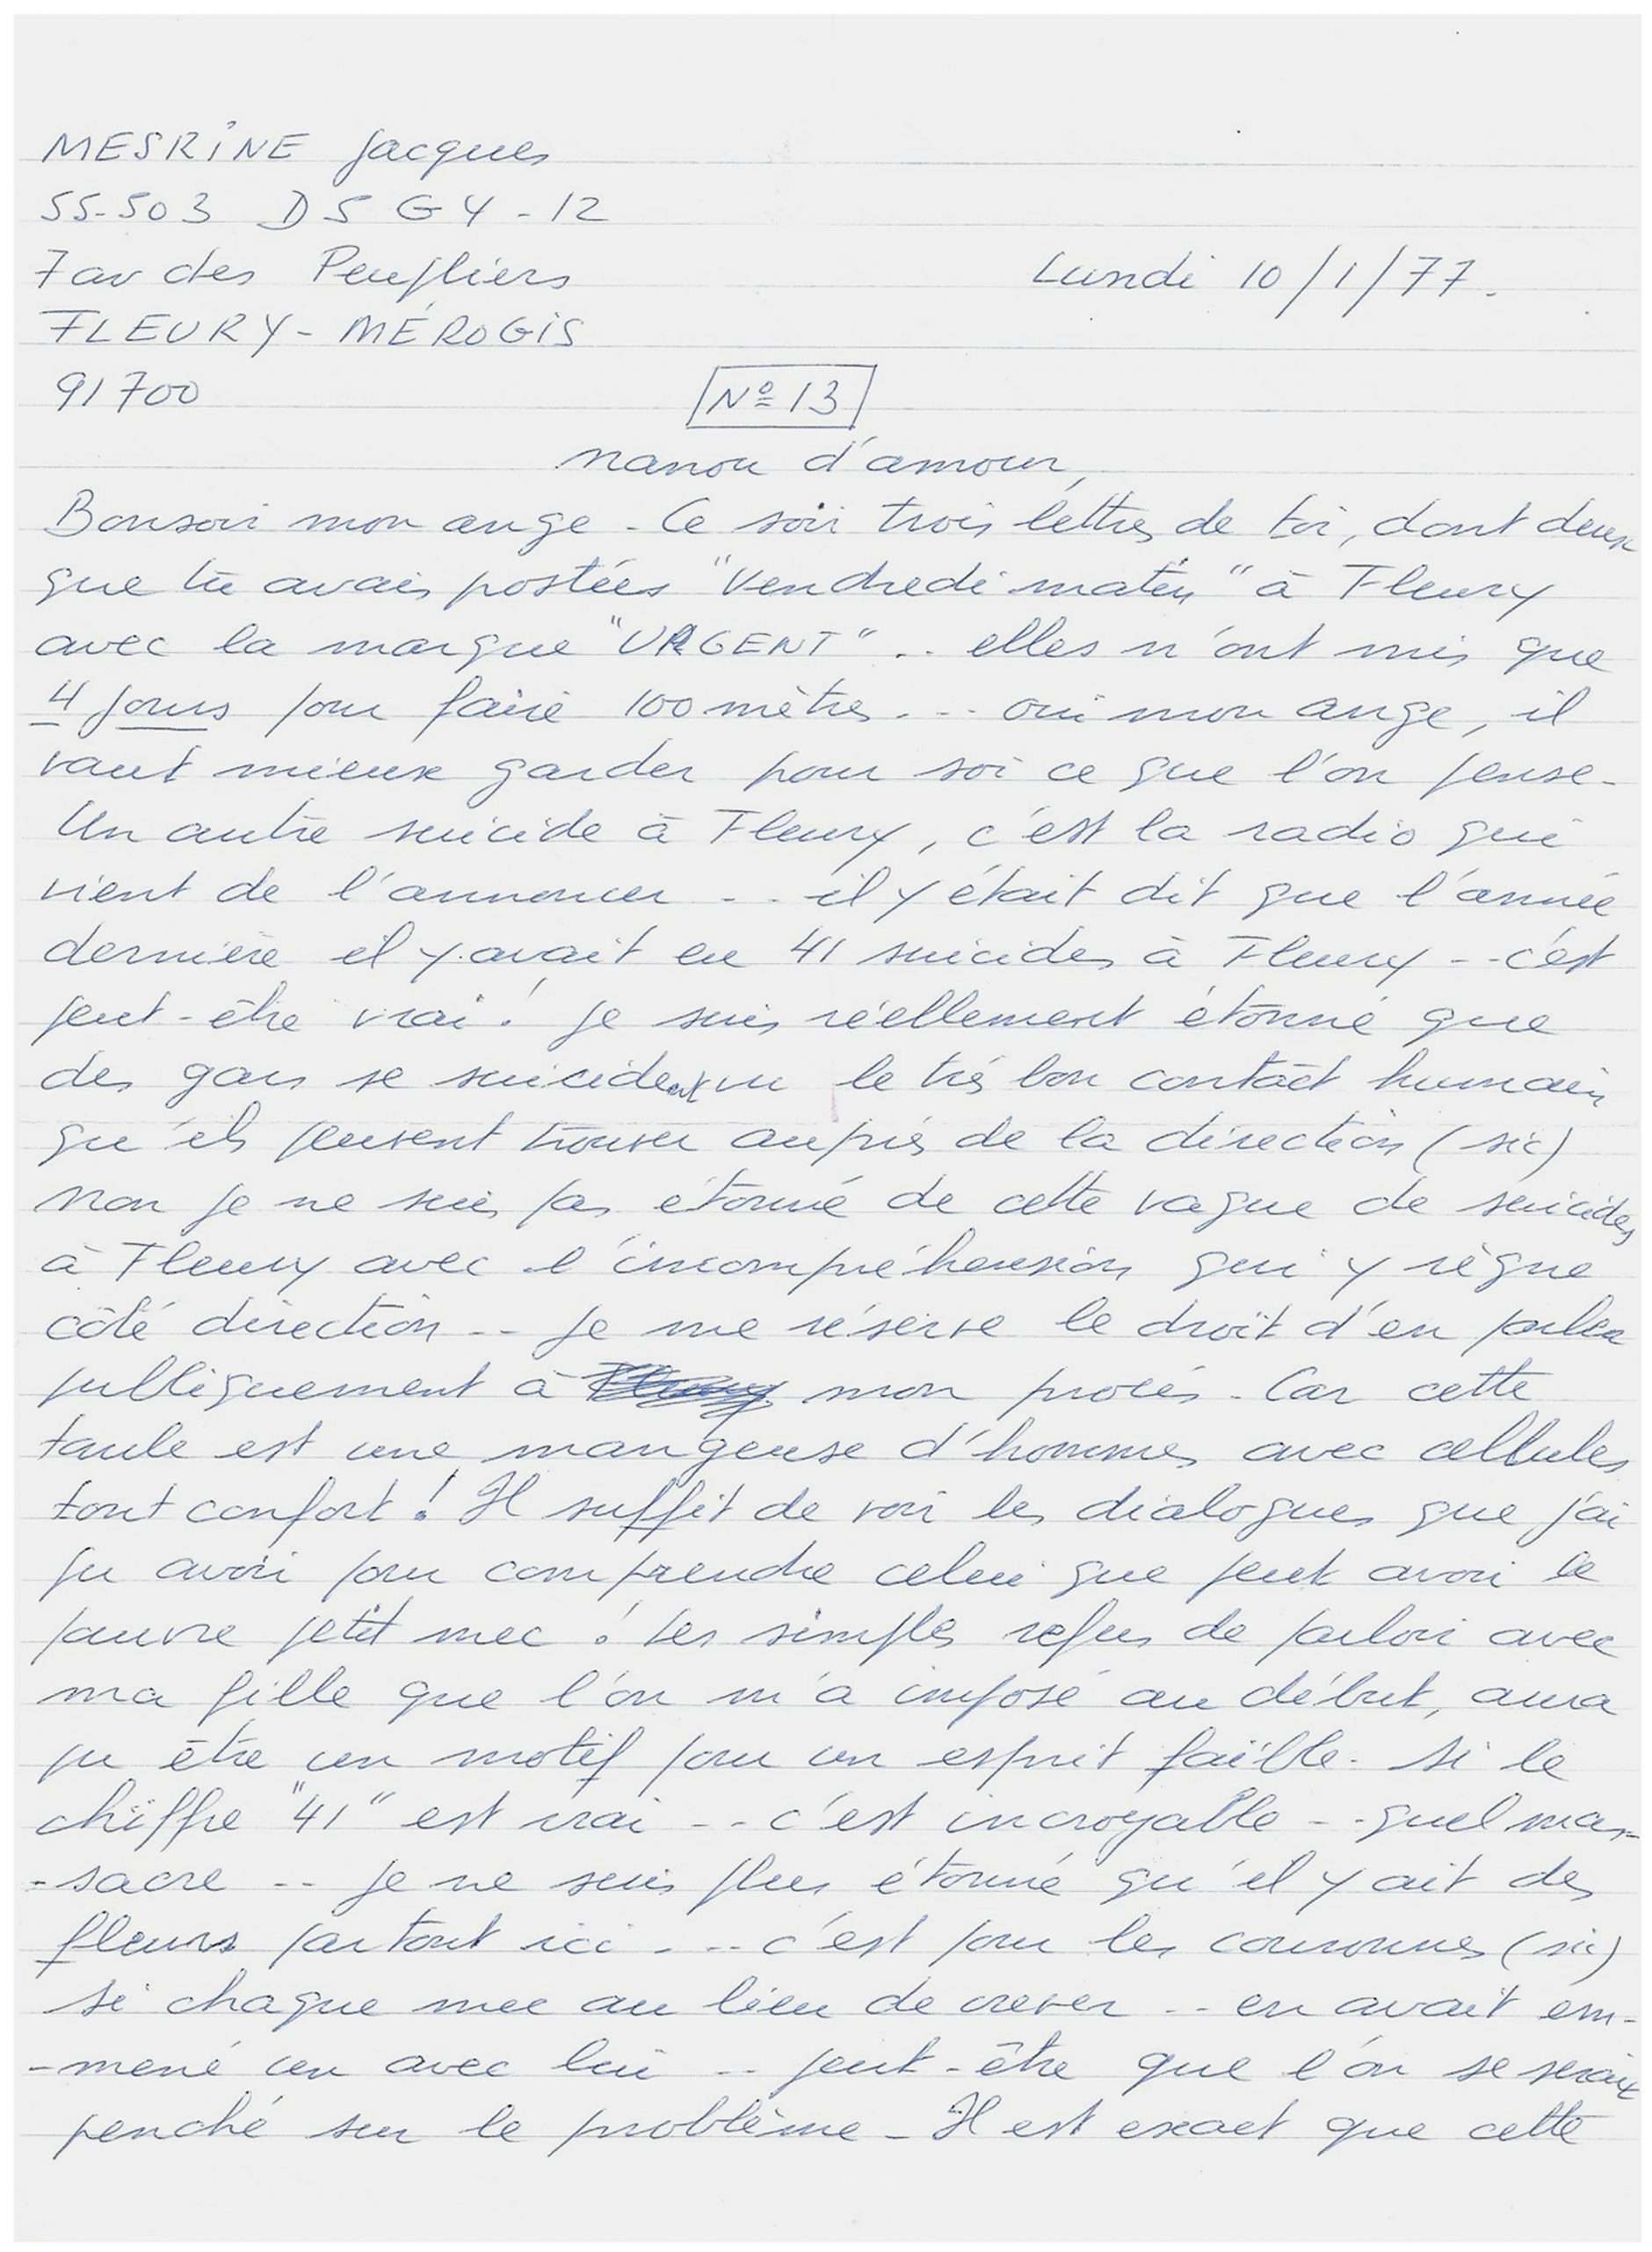 MESRINE Jacques
55-503 D5 G4-12
7 av des Peupliers
Lundi 10/1/77.
FLEURY-MÉROGIS
91700
Nº 13
nanou d'amour,
Bonsoir mon ange - Ce soir trois lettres de toi, dont deux
que tu avais postées "Vendredi matin" à Fleury
avec la marque "URGENT" .. elles n'ont mis que
4 jours pour faire 100 mètres ... oui mon ange, il
vaut mieux garder pour soi ce que l'on pense -
Un autre suicide à Fleury, c'est la radio qui
vient de l'annoncer .. il y était dit que l'année
dernière il y avait eu 41 suicides à Fleury -- c'est
peut-être vrai ! je suis réellement étonné que
des gars se suicident vu le très bon contact humain
qu'ils peuvent trouver auprès de la direction (sic)
Non je ne suis pas étonné de cette vague de suicides
à Fleury avec l'incompréhension qui y règne
côté direction -- je me réserve le droit d'en parler
publiquement à mon procès - Car cette
taule est une mangeuse d'hommes avec cellules
tout confort ! Il suffit de voir les dialogues que j'ai
pu avoir pour comprendre celui que peut avoir le
pauvre petit mec ! Les simples refus de parloir avec
ma fille que l'on m'a imposé au début, aura
pu être un motif pour un esprit faible - si le
chiffre "41" est vrai -- c'est incroyable -- quel mas-
-sacre -- je ne suis plus étonné qu'il y ait des
fleurs partout ici ... c'est pour les couronnes (sic)
si chaque mec au lieu de crever -- en avait em-
-mené un avec lui -- peut-être que l'on se serait
penché sur le problème - Il est exact que cette